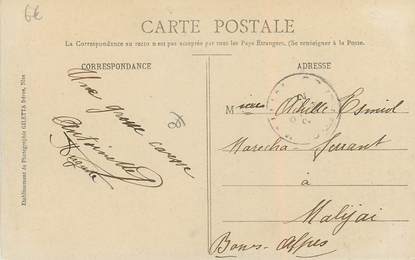 6€
CARTE POSTALE
La Correspondance au recto n'est pas acceptée par tous les Pays Étrangers. (Se renseigner à la Poste.
CORRESPONDANCE
ADRESSE
Une grosse caresse
Antoinette
Auguste
M Achille Esmiol
Marecha-Ferrant
à
Malijai
Basses-Alpes
Etablissement de Photographie GILETTA frères, Nice